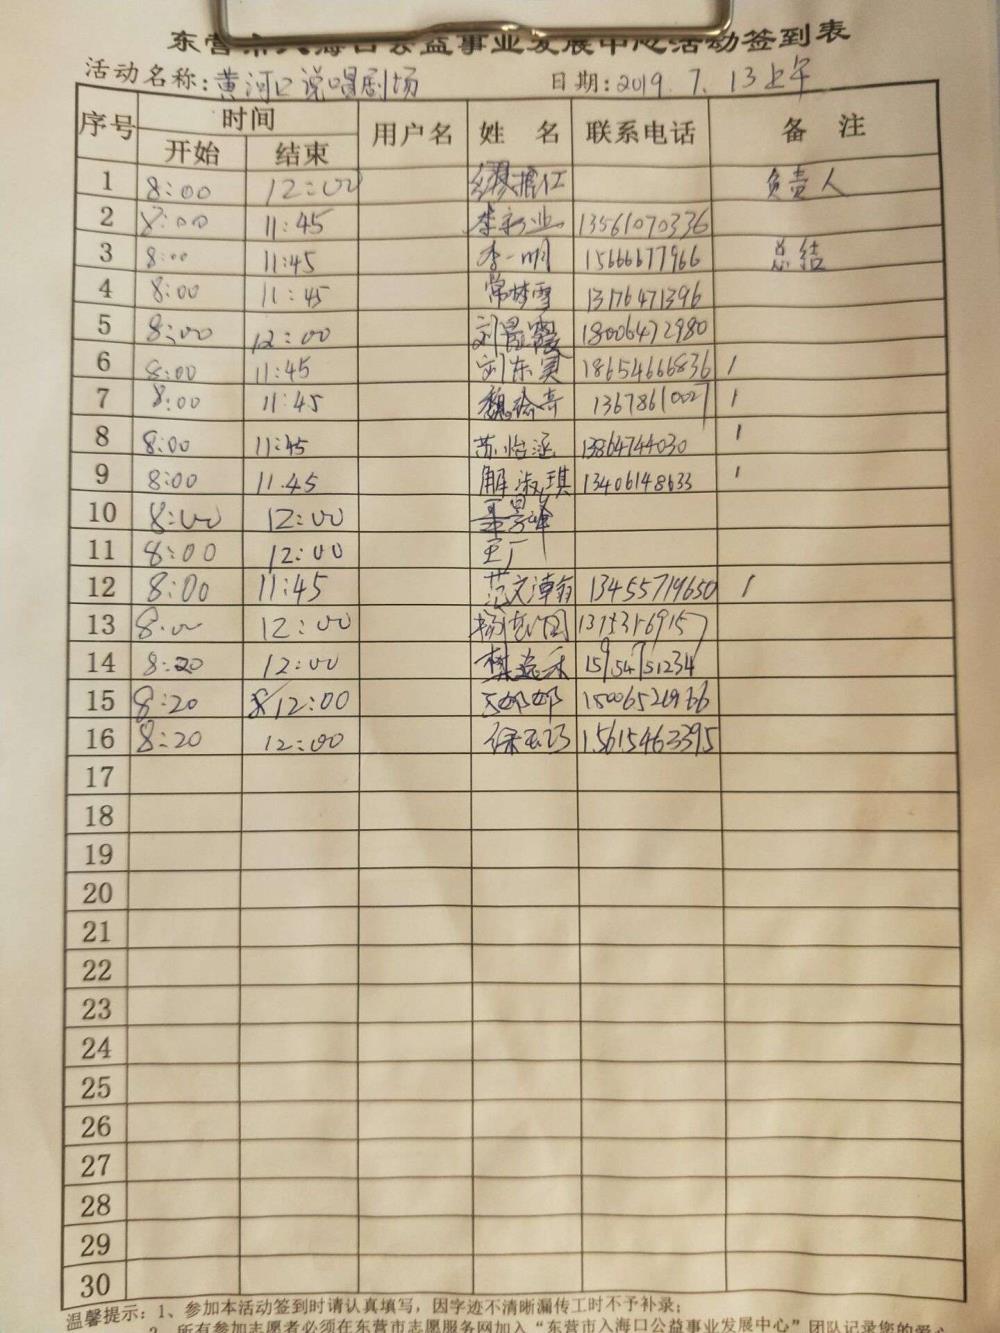 东营市入海口公益事业发展中心活动签到表
活动名称:黄河口说唱剧场 日期:2019.7.13上午
序号 时间 用户名 姓名 联系电话 备注
开始 结束
1 8:00 12:00 负责人
2 8:00 11:45 李新业 13561070336
3 8:00 11:45 李一明 15666677966 总结
4 8:00 11:45 常梦雪 13176471396
5 8:00 12:00 刘昆霞 18006472980
6 8:00 11:45 刘东昊 18654666836 1
7 8:00 11:45 13678610027 1
8 8:00 11:45 苏怡涵 13864744030 1
9 8:00 11.45 解淑琪 13406148633 1
10 8:00 12:00
11 8:00 12:00 王广
12 8:00 11:45 范文潭翰 13455719650 1
13 8:00 12:00
14 8:20 12:00 15954751234
15 8:20 12:00
16 8:20 12:00 徐玉巧 15615463395
17
18
19
20
21
22
23
24
25
26
27
28
29
30
温馨提示:1、参加本活动签到时请认真填写，因字迹不清晰漏传工时不予补录;
2、所有参加志愿者必须在东营市志愿服务网加入“东营市入海口公益事业发展中心”团队记录您的爱心